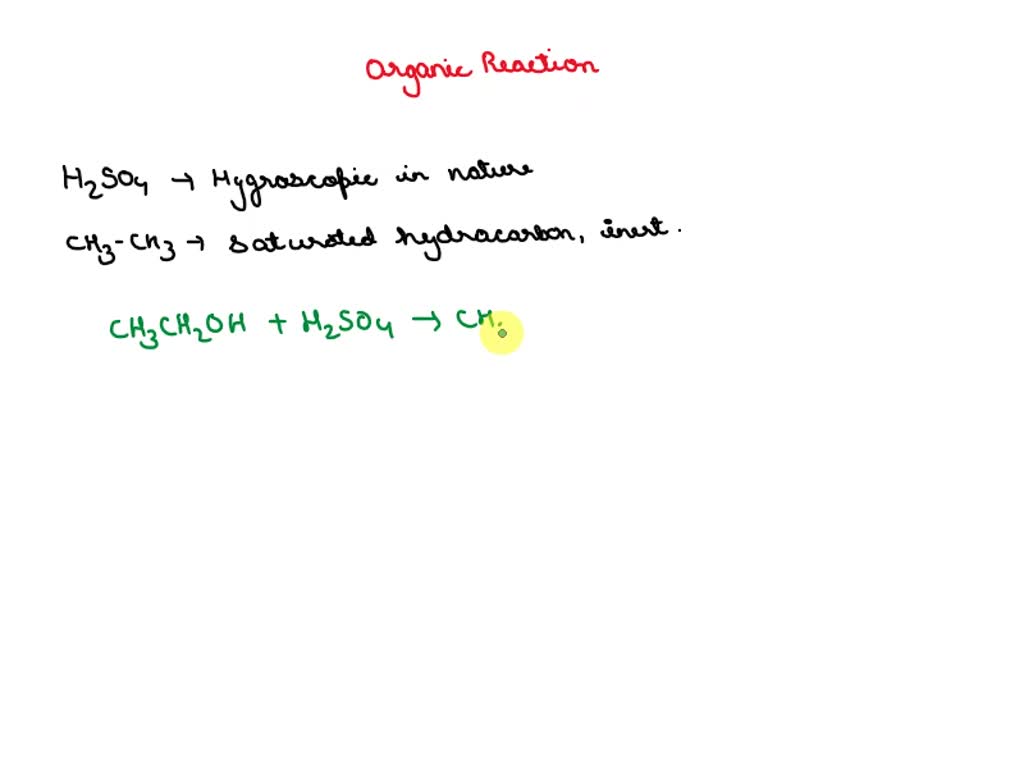 Organic Reaction
H₂SO₄ → Hygroscopic in nature
CH₃-CH₃ → saturated hydracarbon, inert.
CH₃CH₂OH + H₂SO₄ → CH